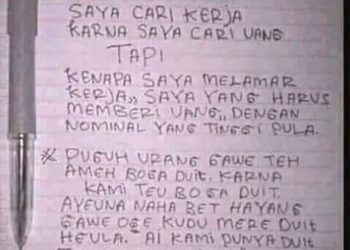 SAYA CARI KERJA
KARNA SAYA CARI UANG
TAPI
KENAPA SAYA MELAMAR
KERJA,, SAYA YANG HARUS
MEMBERI UANG,, DENGAN
NOMINAL YANG TINGGI PULA.
* PUGUH URANG GAWE TEH
AMEH BOGA DUIT. KARNA
KAMI TEU BOGA DUIT.
AYEUNA NAHA BET HAYANG
GAWE OGE KUDU MERE DUIT
HEULA. AI KAMI PUNYA DUIT